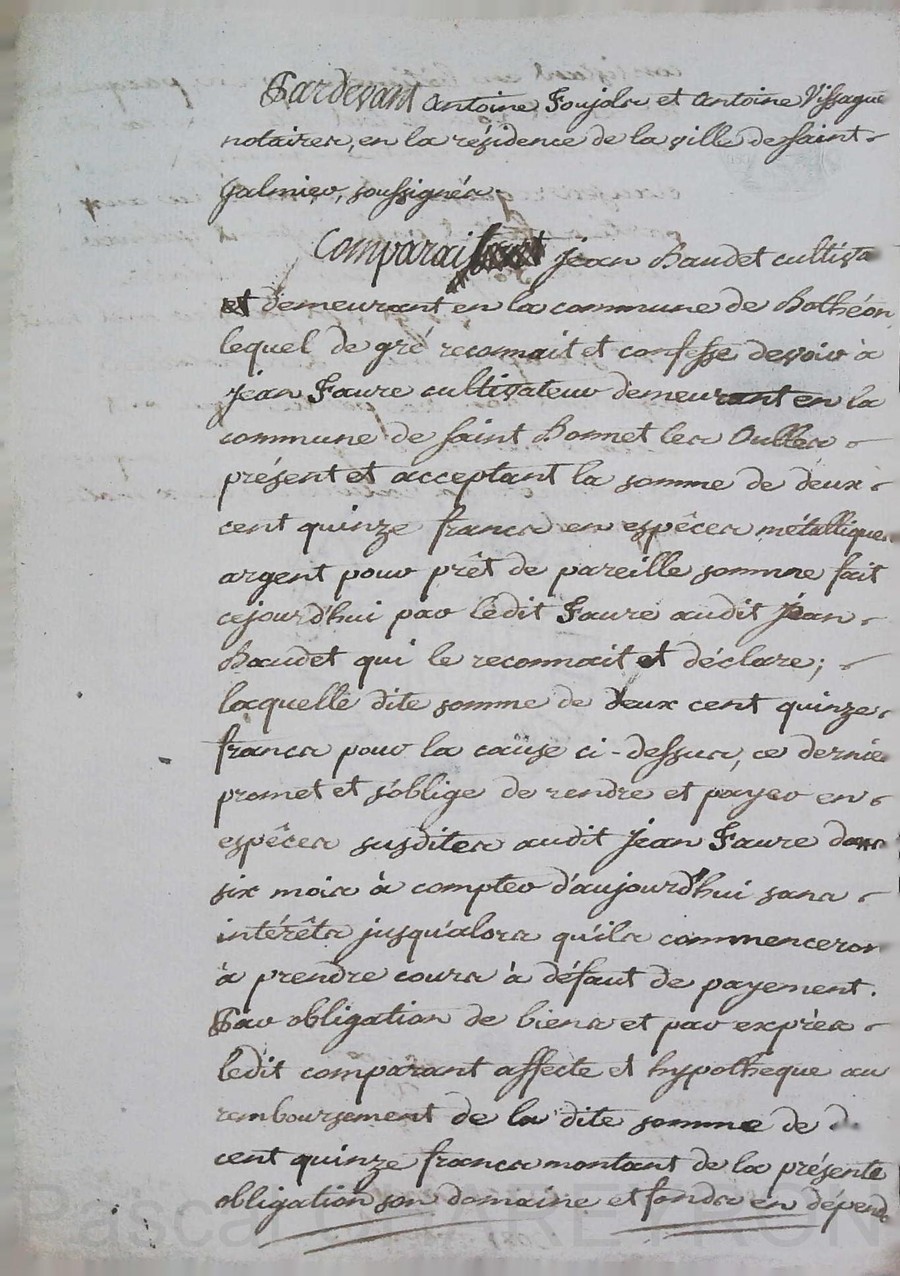 Pardevant Antoine Foujols et Antoine Vissague
notaires, en la résidence de la ville de saint-
galmier, soussignés.
Comparaissant jean Baudet cultiva
et demeurant en la commune de Bothéon
lequel de gré reconnait et confesse devoir à
jean Faure cultivateur demeurant en la
commune de saint Bonnet les Oulles -
présent et acceptant la somme de deux-
cent quinze francs en espêces métallique
argent pour prêt de pareille somme fait
cejourd'hui par lédit Faure audit jean -
Baudet qui le reconnait et déclare; -
laquelle dite somme de deux cent quinze-
francs pour la caüse ci-dessus, ce dernie
promet et s'oblige de rendre et payer en-
espêces susdites audit jean Faure dans
six mois à compter d'aujourd'hui sans -
intérêts jusqu'alors qu'ils commenceron
à prendre cours à défaut de payement.
Par obligation de biens et par exprès -
lédit comparant affecte et hypotheque au
remboursement de la dite somme de d
cent quinze francs montant de la présente
obligation son domaine et fonds en dépend
Pascal CHAREYRON